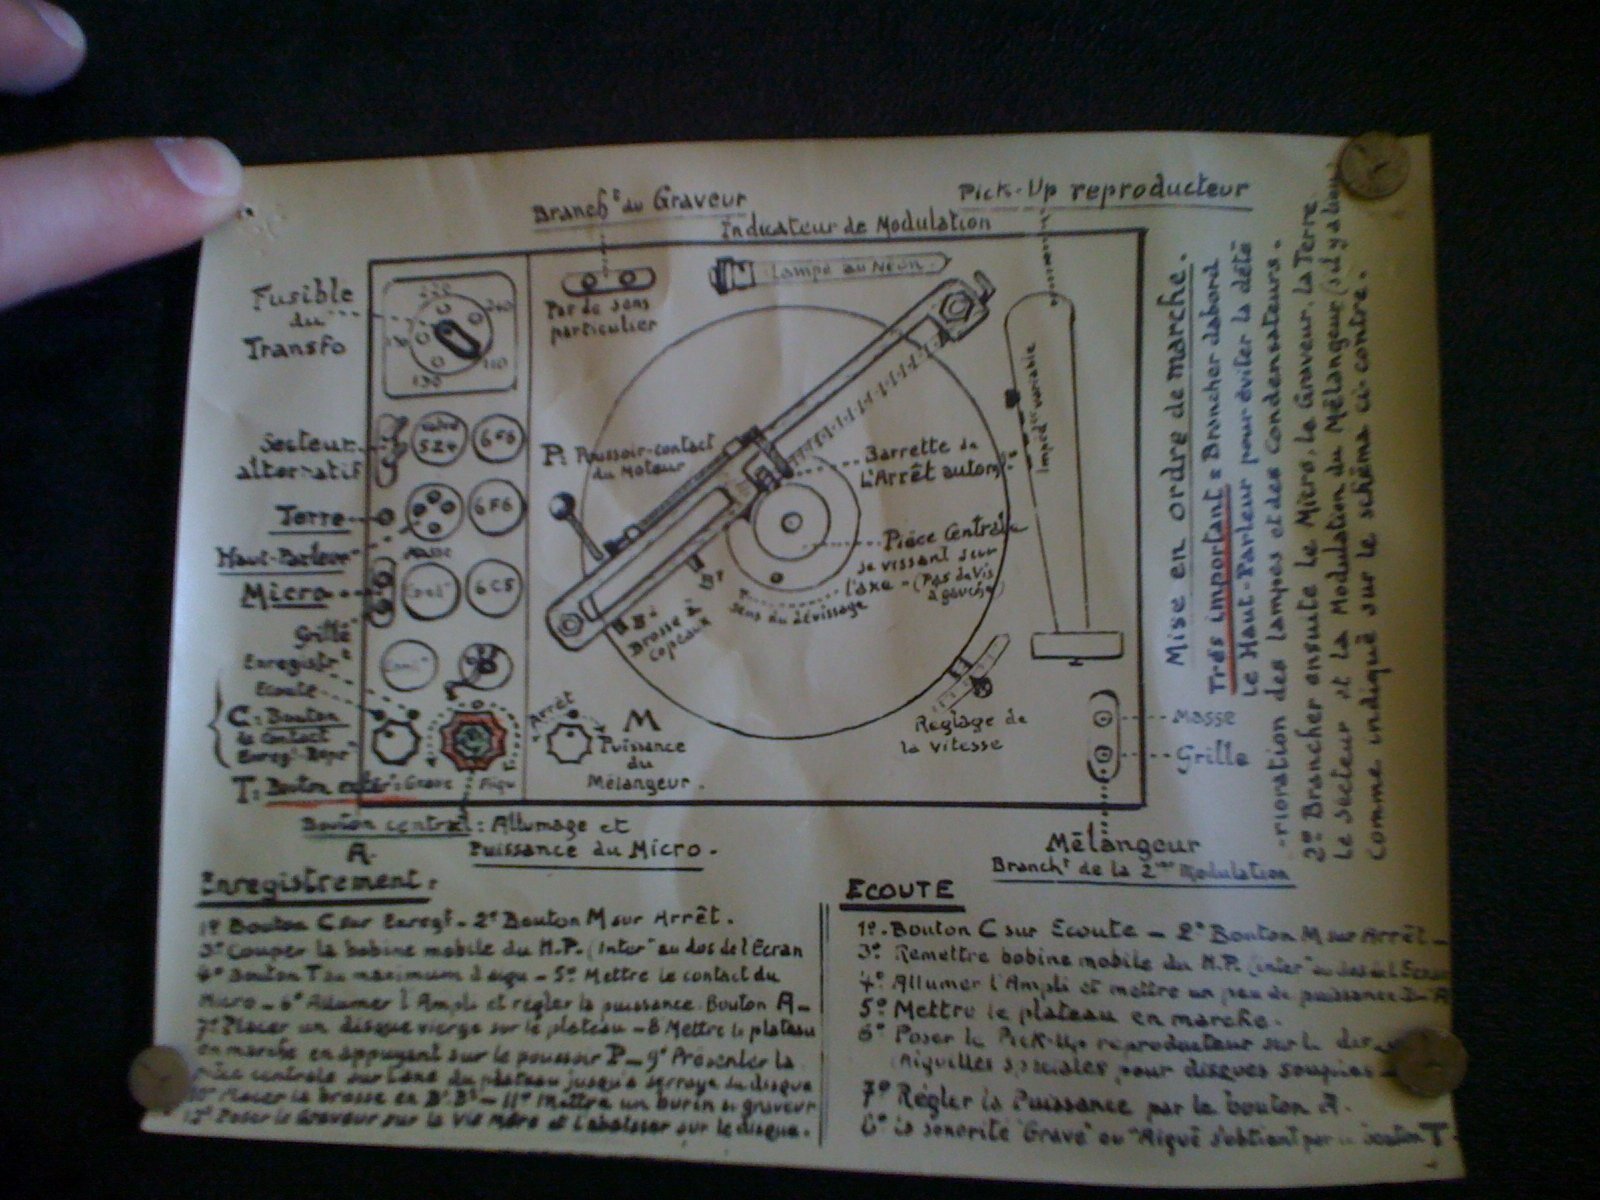 Branchᵗ du Graveur
Pick-Up reproducteur
Indicateur de Modulation
Lampe au Néon
Pas de sens
particulier
Fusible
du
Transfo
220
240
110
130
Secteur
alternatif
Valve
5Z4
6F6
Terre
6F6
Haut-Parleur
Masse
Micro
6C5
Grille
Enregistrᵗ
Ecoute
C: Bouton
de contact
T: Bouton extérʳ: Grave Aigu
Bouton central: Allumage et
A.
Puissance du Micro.
P: Poussoir-contact
du Moteur
Barrette de
L'Arrêt autom
Pièce Centrale
se vissant sur
l'axe - (Pas de Vis
à gauche)
Sens du dévissage
B¹
B²
Brosse à
Copeaux
Arrêt
M
Puissance
du
Mélangeur.
Réglage de
la vitesse
Impédᶜᵉ variable
Masse
Grille
Mélangeur
Branchᵗ de la 2ᵐᵉ Modulation
Mise en ordre de marche.
Très important: Brancher dabord
le Haut-Parleur pour éviter la dété
-rioration des lampes et des Condensateurs.
2º Brancher ensuite le Micro, le Graveur, la Terre
le secteur et la Modulation du Mélangeur (s'il y a lieu)
comme indiqué sur le schéma ci-contre.
Enregistrement:
1º Bouton C sur Enregᵗ - 2º Bouton M sur Arrêt.
3º Couper la bobine mobile du H.P. (Interʳ au dos de l'Ecran
4º Bouton T au maximum d'aigu - 5º Mettre le contact du
Micro - 6º Allumer l'Ampli et régler la puissance. Bouton A-
7º Placer un disque vierge sur le plateau - 8 Mettre le plateau
en marche en appuyant sur le poussoir P - 9º Présenter la
pièce centrale sur l'axe du plateau jusqu'à serrage du disque
10º Placer la brosse en B¹ B² - 11º Mettre un burin au graveur
12º Poser le Graveur sur la Vis Mère et l'abaisser sur le disque.
ECOUTE
1º. Bouton C sur Ecoute - 2º Bouton M sur Arrêt -
3º Remettre bobine mobile du H.P. (interʳ au dos de l'Ecran
4º Allumer l'Ampli et mettre un peu de puissance B- A
5º Mettre le plateau en marche.
6º Poser le Pick-Up reproducteur sur le
(Aiguilles spéciales pour disques souples -
7º Régler la Puissance par le bouton A.
8º la sonorité "Grave" ou "Aiguë" s'obtient par bouton T.